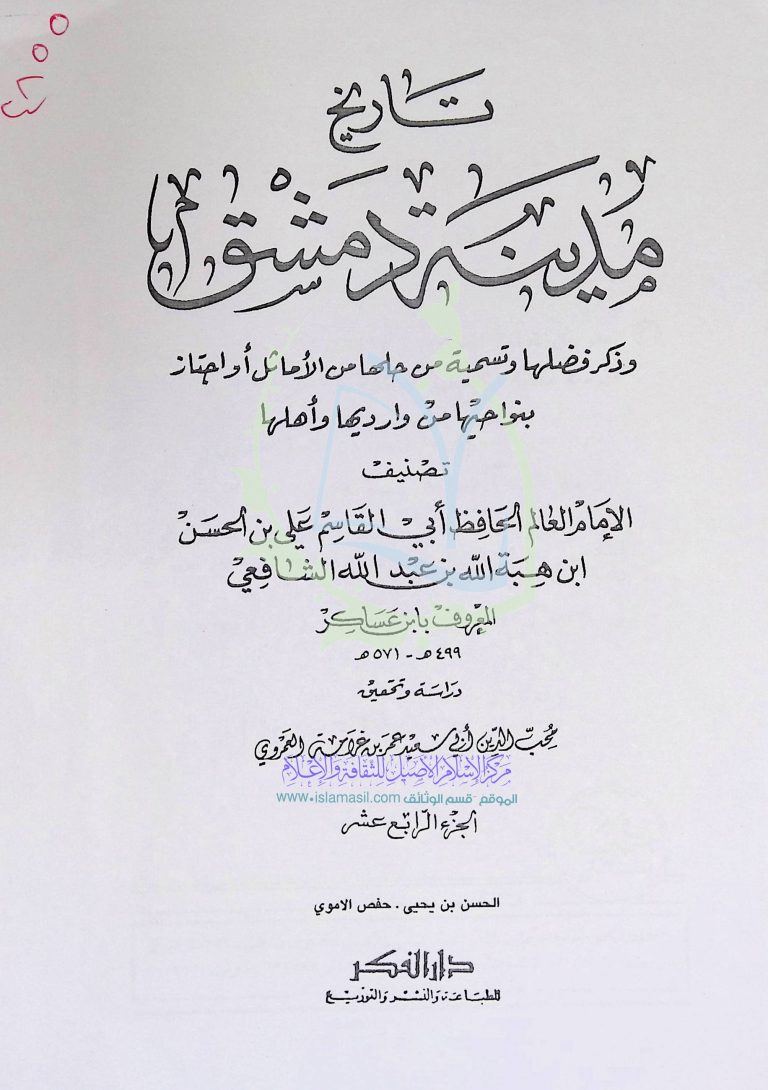 تاريخ
مدينة دمشق
وذكر فضلها وتسمية من حلها من الأماثل أو اجتاز
بنواحيها من وارديها وأهلها
تصنيف
الإمام العالم الحافظ أبي القاسم علي بن الحسن
ابن هبة الله بن عبد الله الشافعي
المعروف بابن عساكر
٤٩٩ هـ - ٥٧١ هـ
دراسة وتحقيق
محب الدين أبي سعيد عمر بن غرامة العمروي
مركز الإسلام الأصيل للثقافة والإعلام
الموقع - قسم الوثائق www.islamasil.com
الجزء الرابع عشر
الحسن بن يحيى . حفص الاموي
دار الفكر
للطباعة والنشر والتوزيع